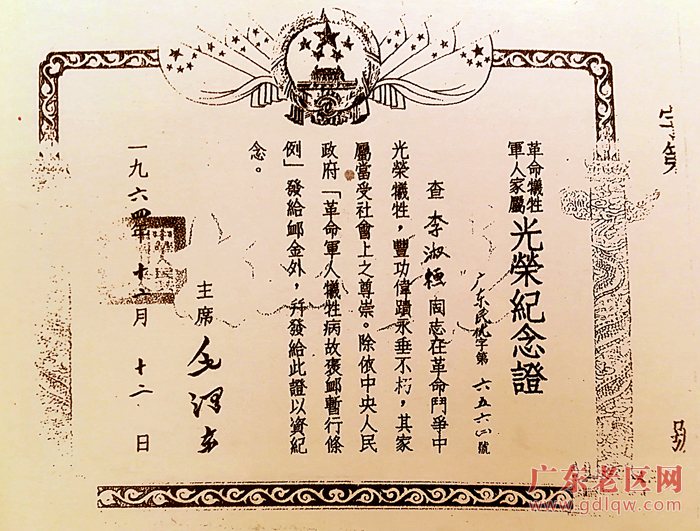 革命犧牲
軍人家屬
光榮紀念證
广东民优字第六五六〇號
查李淑桓同志在革命鬥爭中
光榮犧牲，豐功偉蹟永垂不朽，其家
屬當受社會上之尊崇。除依中央人民
政府「革命軍人犧牲病故褒邺暫行條
例」發給邺金外，幷發給此證以資紀
念。
主席毛澤东
一九六四年十二月十二日
广东老区网
www.gdlqw.com